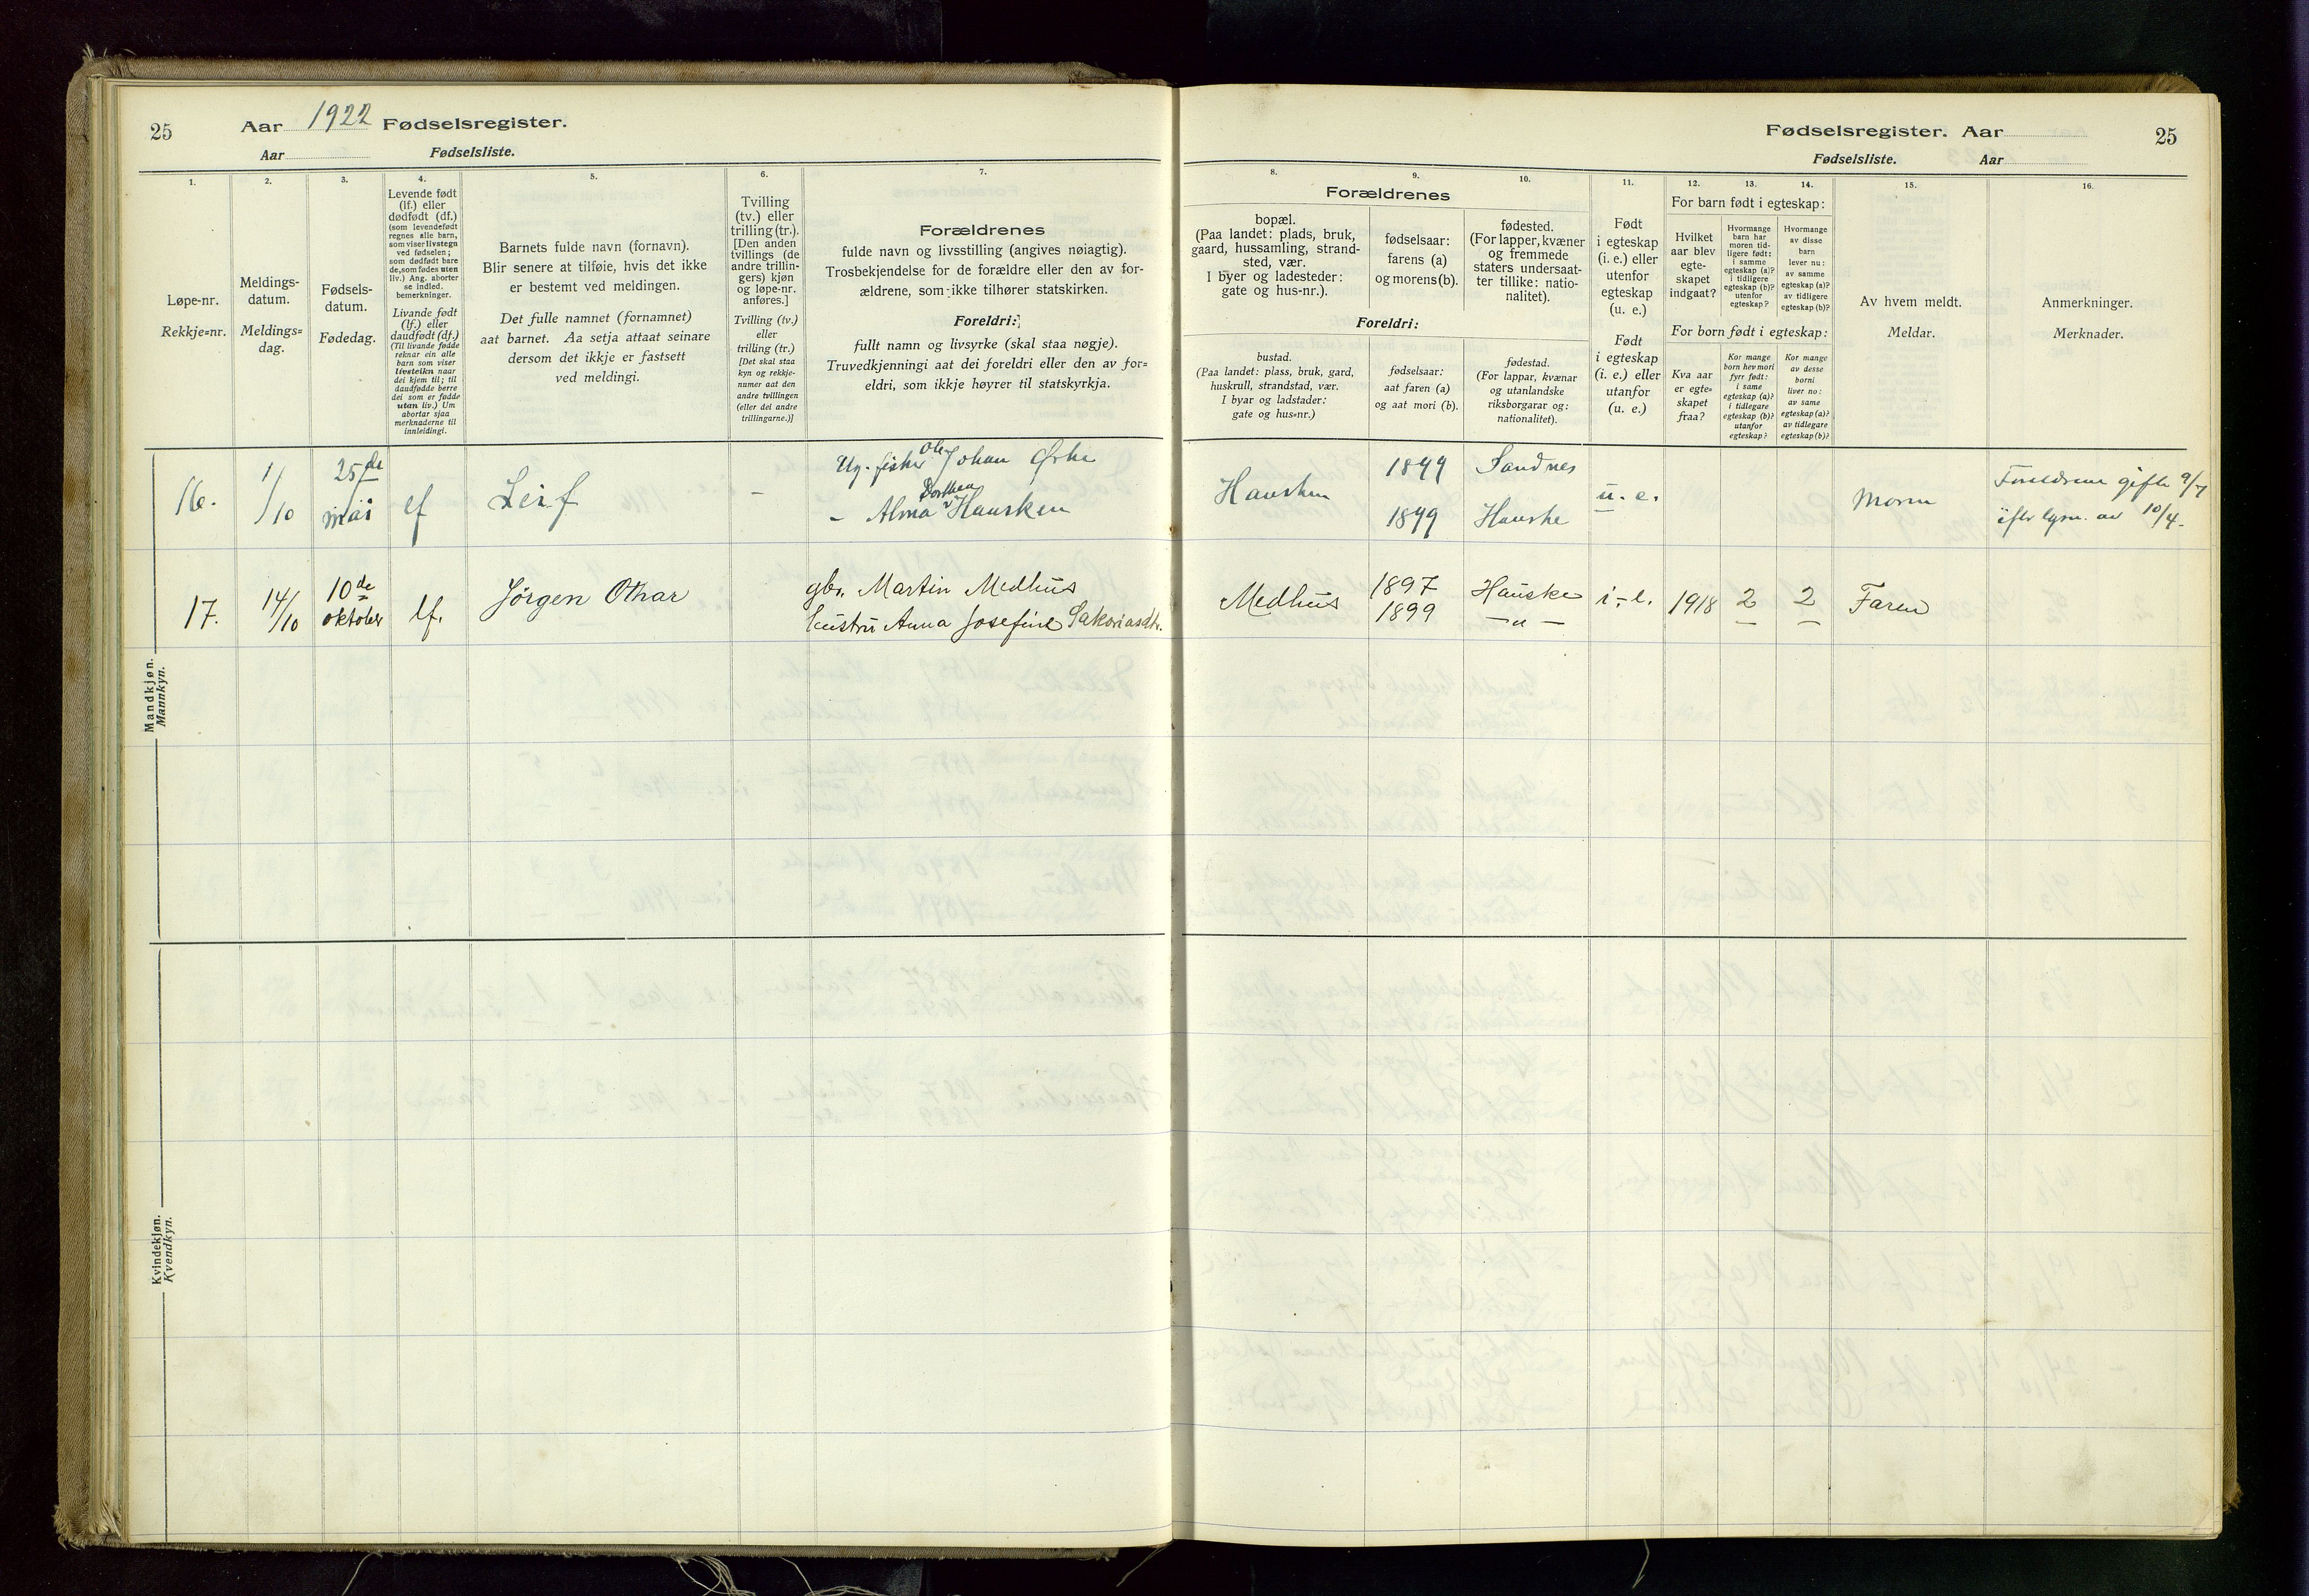 25 Aar 1922 Fødselsregister.
Aar Fødselsliste.
Fødselsregister. Aar 25
Fødselsliste. Aar
1.
Løpe-nr.
Rekkje=nr.
2.
Meldings-
datum.
Meldings=
dag.
3.
Fødsels-
datum.
Fødedag.
4.
Levende født
(lf.) eller
dødfødt (df.)
(som levendefødt
regnes alle barn,
som viser livstegn
ved fødselen;
som dødfødt bare
de, som fødes uten
liv.) Ang. aborter
se indled.
bemerkninger.
Livande født
(lf.) eller
daudfødt (df.)
(Til livande fødde
reknar ein alle
barn som viser
livsteikn naar
dei kjem til; til
daudfødde berre
dei som er fødde
utan liv.) Um
abortar sjaa
merknaderne til
innleidingi.
5.
Barnets fulde navn (fornavn).
Blir senere at tilføie, hvis det ikke
er bestemt ved meldingen.
Det fulle namnet (fornamnet)
aat barnet. Aa setja attaat seinare
dersom det ikkje er fastsett
ved meldingi.
6.
Tvilling
(tv.) eller
trilling (tr.).
[Den anden
tvillings (de
andre trillin-
gers) kjøn
og løpe-nr.
anføres.]
Tvilling (tv.)
eller
trilling (tr.)
[Det skal staa
kyn og rekkje-
numer aat den
andre tvillingen
(eller dei andre
trillingarne.)]
7.
Forældrenes
fulde navn og livsstilling (angives nøiagtig).
Trosbekjendelse for de forældre eller den av for-
ældrene, som ikke tilhører statskirken.
Foreldri:
fullt namn og livsyrke (skal staa nøgje).
Truvedkjenningi aat dei foreldri eller den av for=
eldri, som ikkje høyrer til statskyrkja.
Forældrenes
8.
bopæl.
(Paa landet: plads, bruk,
gaard, hussamling, strand-
sted, vær.
I byer og ladesteder:
gate og hus-nr.).
Foreldri:
bustad.
(Paa landet: plass, bruk, gard,
huskrull, strandstad, vær.
I byar og ladstader:
gate og hus=nr.)
9.
fødselsaar:
farens (a)
og morens (b).
fødselsaar:
aat faren (a)
og aat mori (b).
10.
fødested.
(For lapper, kvæner
og fremmede
staters undersaat-
ter tillike: natio-
nalitet).
fødestad.
(For lappar, kvænar
og utanlandske
riksborgarar og:
nationalitet).
11.
Født
i egteskap
(i. e.) eller
utenfor
egteskap
(u. e.)
Født
i egteskap
(i. e.) eller
utanfor
(u. e.)
For barn født i egteskap:
12.
Hvilket
aar blev
egte-
skapet
indgaat?
13.
Hvormange
barn har
moren tid-
ligere født:
i samme
egteskap (a)?
i tidligere
egteskap (b)?
utenfor
egteskap?
14.
Hvormange
av disse
barn
lever nu:
av samme
egteskap (a)?
av tidligere
egteskap (b)?
For born født i egteskap:
Kva aar
er egte=
skapet
fraa?
Kor mange
born hev mori
fyrr født:
i same
egteskap (a)?
i tidlegare
egteskap (b)?
utanfor
egteskap?
Kor mange
av desse
borni
liver no:
av same
egteskap (a)?
av tidlegare
egteskap (b)?
15.
Av hvem meldt.
Meldar.
16.
Anmerkninger.
Merknader.
Mandkjøn.
Mannkyn.
16. 1/10 25de mai lf Leif - Ug. fisker Ole Johan
- Alma Dorthea Hausken
Hausken 1899 Sandnes u. e. Moren Foreldrene gifte 9/7
1899 Hauske efter lysn. av 10/4.
17. 14/10 10de oktober lf. Jörgen Othar gbr. Martin Medhus
hustru Anna Josefine Sakoriasdtr.
Medhus 1897 Hauske i. e. 1918 2 2 Faren
1899 — " —
Kvindekjøn.
Kvendkyn.